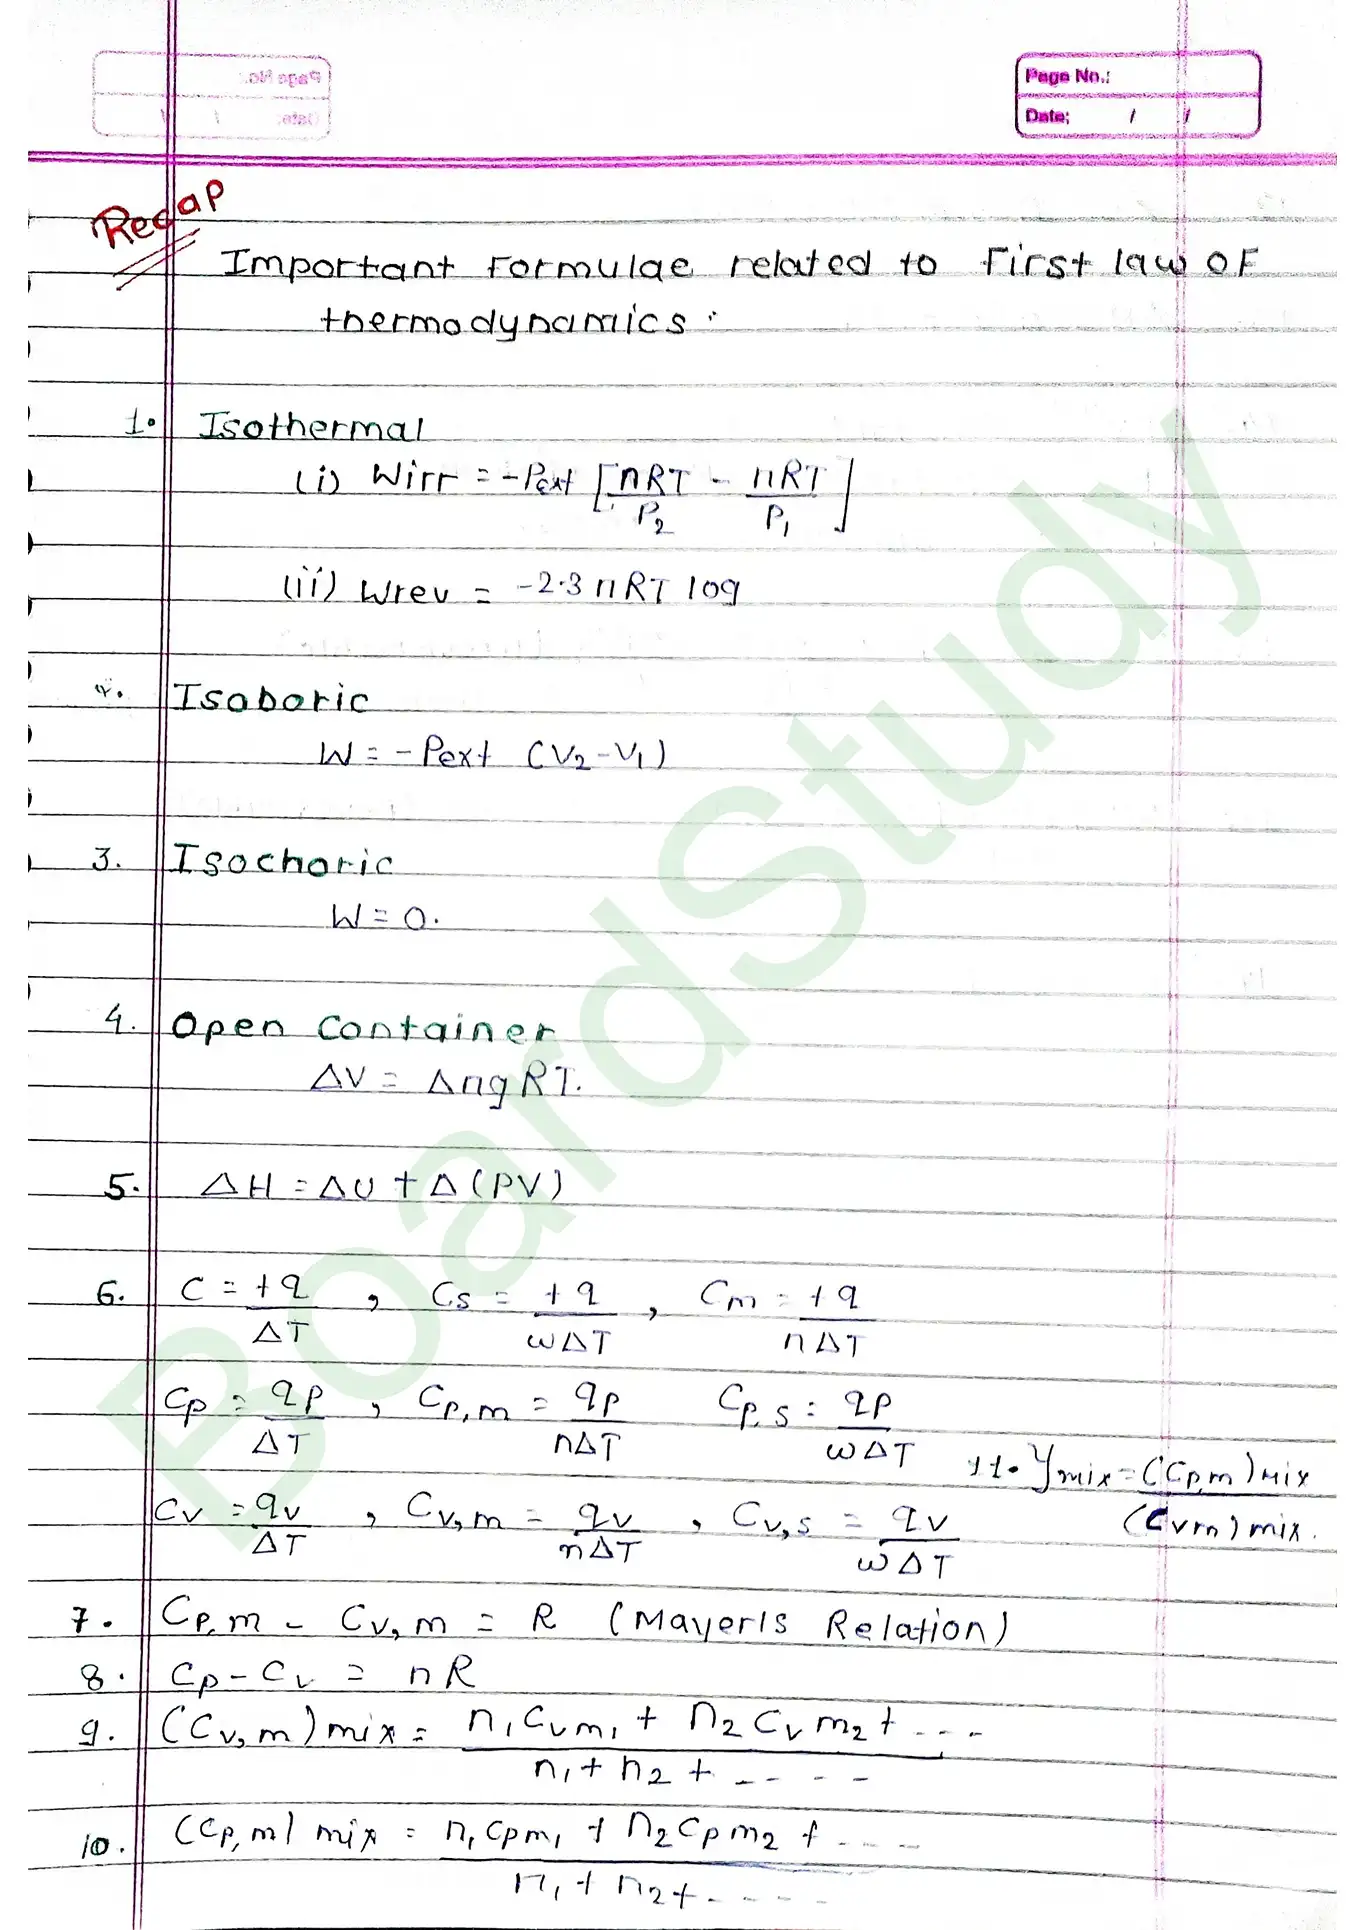 Page No.:
Date: / /
Recap
Important Formulae related to First law of
thermodynamics:
1. Isothermal
(i) Wirr = -Pext [nRT/P2 - nRT/P1]
(ii) Wrev = -2.3 nRT log
2. Isobaric
W = -Pext (V2-V1)
3. Isochoric
W = 0.
4. Open Container
ΔV = ΔngRT.
5. ΔH = ΔU + Δ(PV)
6. C = +q/ΔT , Cs = +q/wΔT , Cm = +q/nΔT
Cp = qp/ΔT , Cp,m = qp/nΔT Cp,s = qp/wΔT
11. γmix = (Cp,m)mix/(Cvm)mix.
Cv = qv/ΔT , Cv,m = qv/nΔT , Cv,s = qv/wΔT
7. Cp,m - Cv,m = R (Mayer's Relation)
8. Cp - Cv = nR
9. (Cv,m)mix = n1Cvm1 + n2Cvm2 + .../n1 + n2 + ....
10. (Cp,m) mix = n1Cpm1 + n2Cpm2 + ..../n1 + n2 + ....
BoardStudy